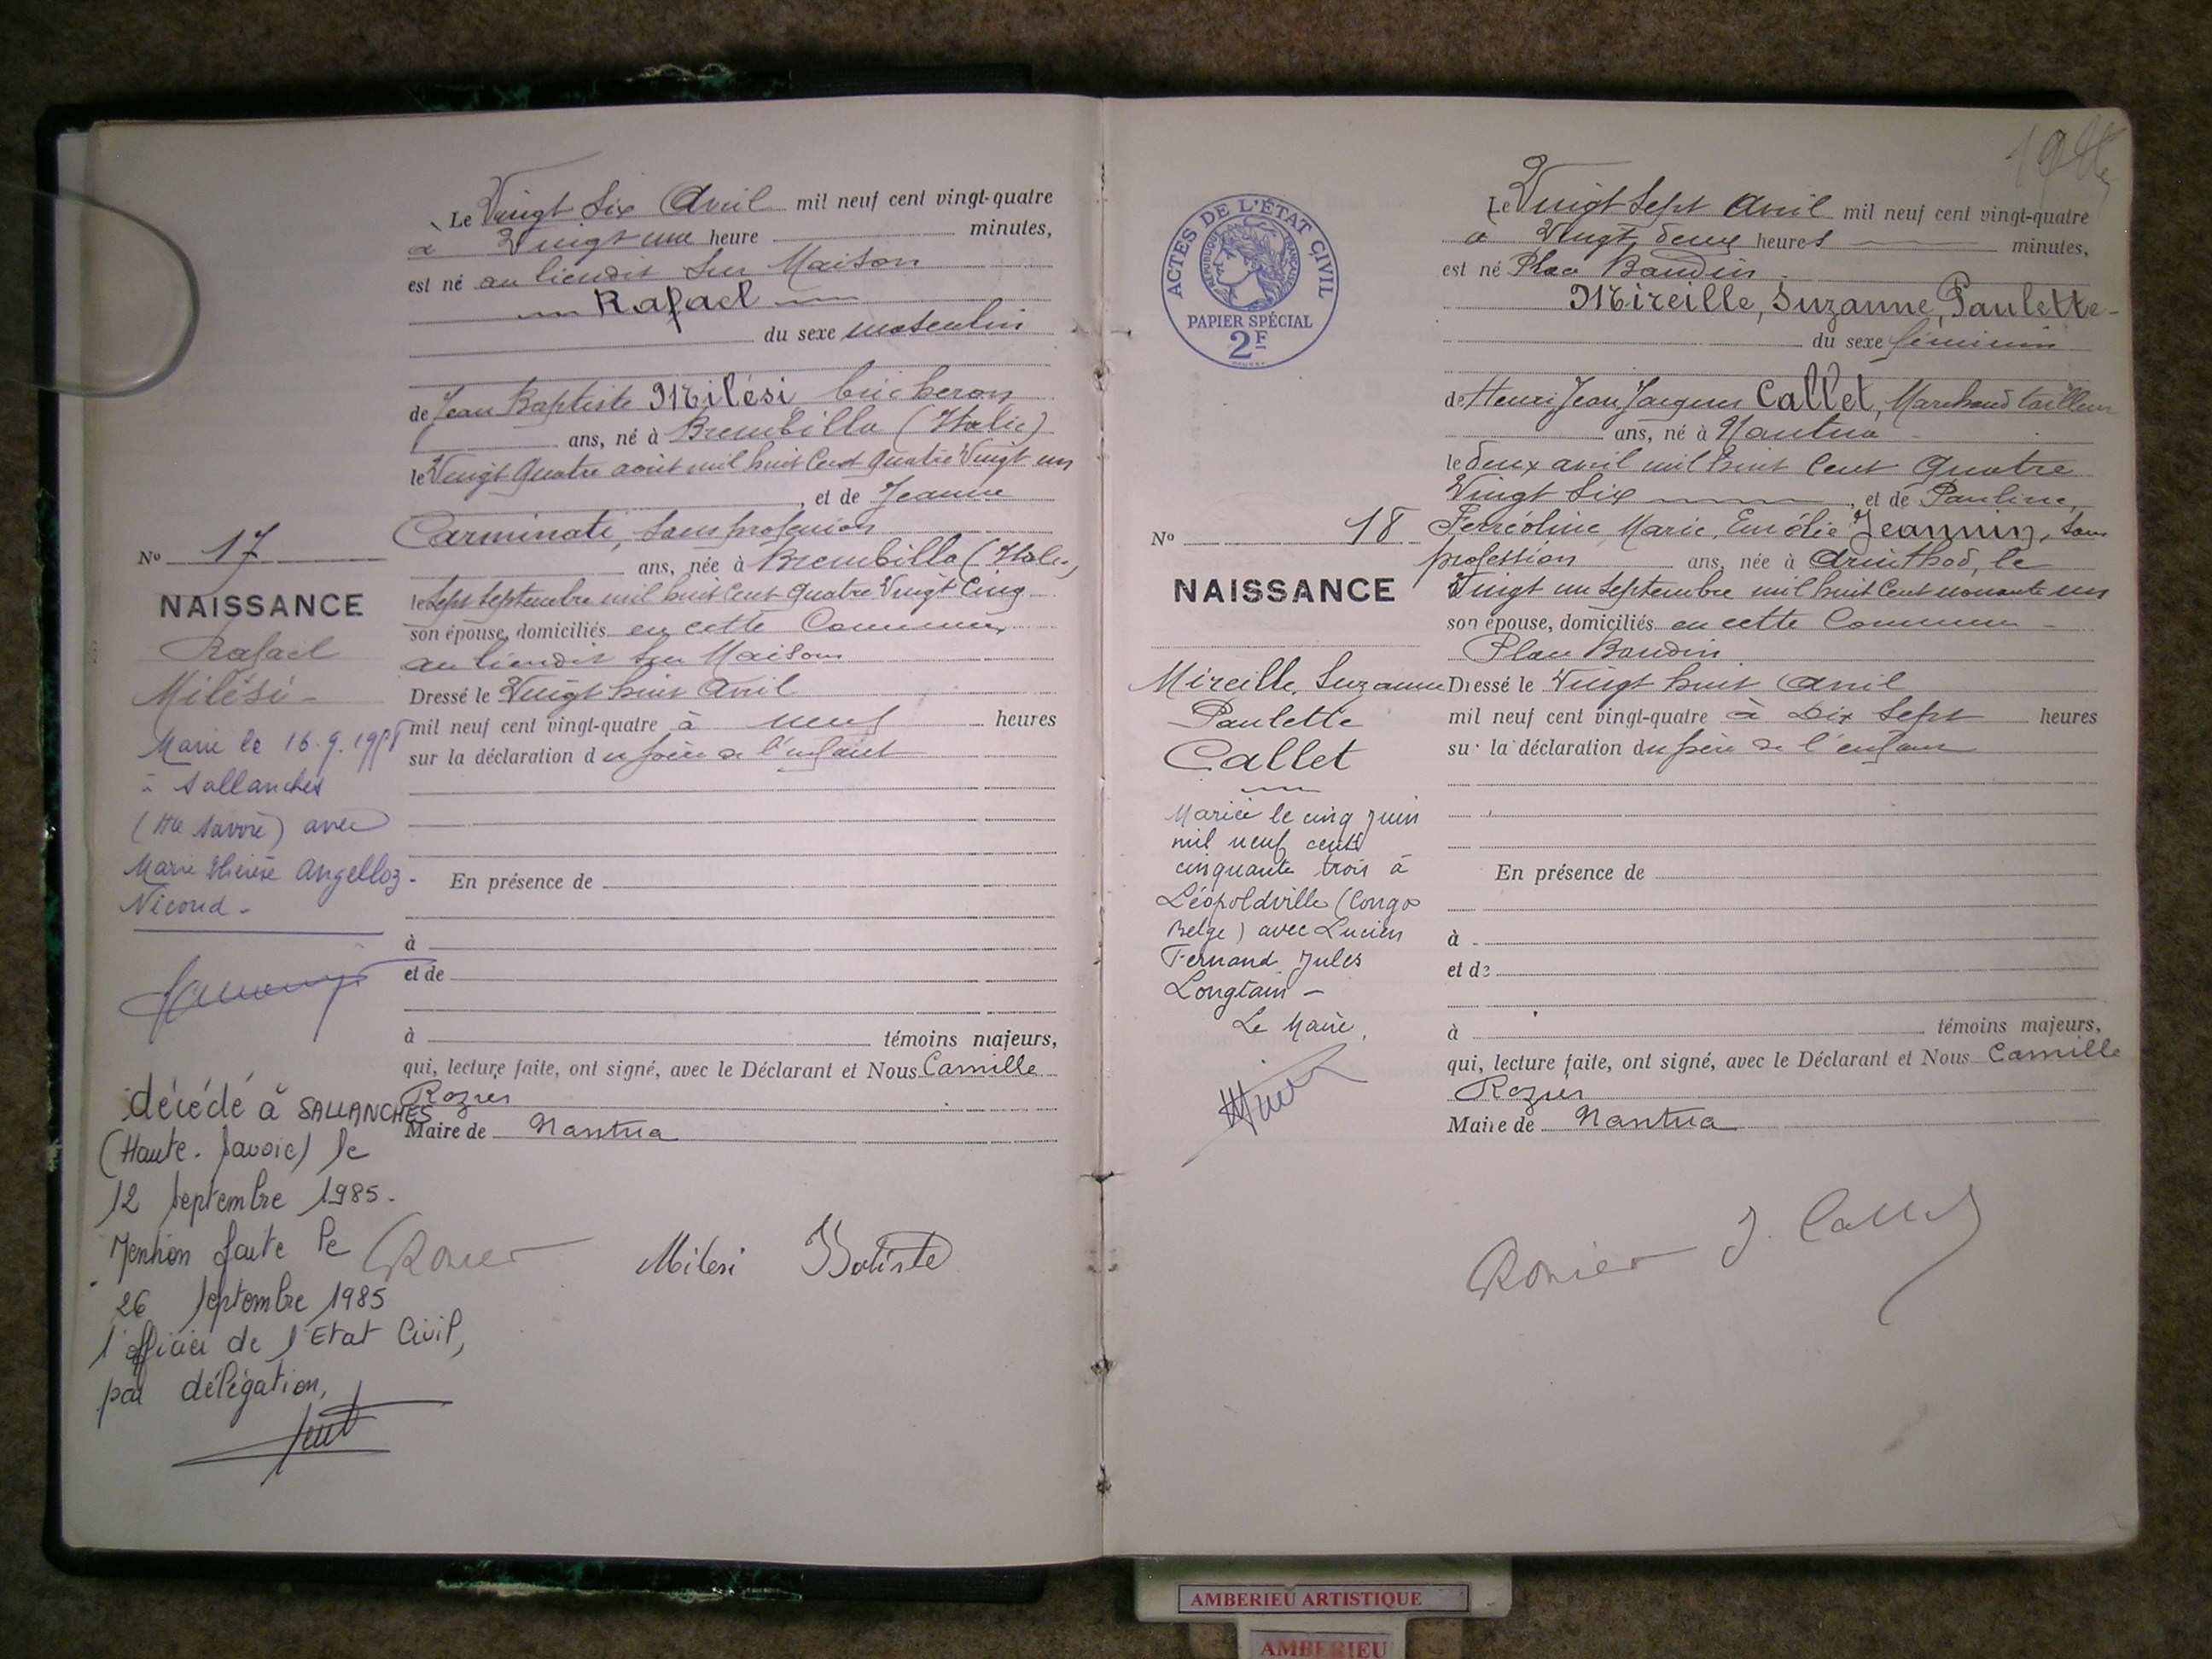 Le Vingt Six Avril mil neuf cent vingt-quatre
à Vingt une heure minutes,
est né au lieudit Sur Maison
Rafael
du sexe masculin
de Jean Baptiste Milési bucheron
ans, né à Brembilla (Italie)
le Vingt Quatre août mil huit Cent Quatre Vingt un
, et de Jeanne
Carminati, Sans profession
ans, née à Brembilla (Italie)
le Sept Septembre mil huit Cent Quatre Vingt Cinq
son épouse, domiciliés en cette Commune
au lieudit Sur Maison
Dressé le Vingt huit Avril
mil neuf cent vingt-quatre à neuf heures
sur la déclaration du père de l'enfant
En présence de
à
et de
à témoins majeurs,
qui, lecture faite, ont signé, avec le Déclarant et Nous Camille
Rozier
Maire de Nantua
Milesi Batiste
Rozier
No 17
NAISSANCE
Rafael
Milési
Marié le 16.9.
à Sallanches
(Hte Savoie) avec
Marie Thérèse Angelloz-
Nicoud-
décédé à SALLANCHES
(Haute-Savoie) le
12 septembre 1985.
Mention faite le
26 septembre 1985
l'officier de l'Etat Civil,
par délégation,
ACTES DE L'ÉTAT CIVIL
RÉPUBLIQUE FRANÇAISE
PAPIER SPÉCIAL
2F
Le Vingt Sept Avril mil neuf cent vingt-quatre
à Vingt deux heures minutes,
est né Place Baudin
Mireille, Suzanne, Paulette-
du sexe féminin
de Henri Jean Jacques Callet, Marchand tailleur
ans, né à Nantua
le deux avril mil huit Cent Quatre
Vingt Six , et de Pauline,
Ferréoline Marie, Jeannin, sans
profession ans, née à Arinthod, le
Vingt un Septembre mil huit Cent nonante un
son épouse, domiciliés en cette Commune -
Place Baudin
Dressé le Vingt huit Avril
mil neuf cent vingt-quatre à Dix Sept heures
sur la déclaration du père de l'enfant
En présence de
à
et de
à témoins majeurs,
qui, lecture faite, ont signé, avec le Déclarant et Nous Camille
Rozier
Maire de Nantua
Rozier J. Callet
No 18
NAISSANCE
Mireille, Suzanne
Paulette
Callet
Mariée le cinq Juin
mil neuf cent
cinquante trois à
Léopoldville (Congo
Belge) avec Lucien
Fernand Jules
Longtain -
Le Maire,
AMBERIEU ARTISTIQUE
AMBERIEU